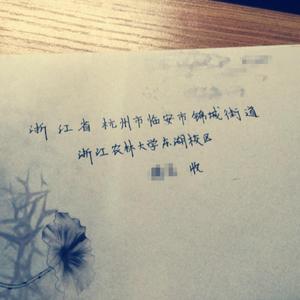 浙江省杭州市临安市锦城街道
浙江农林大学东湖校区
收